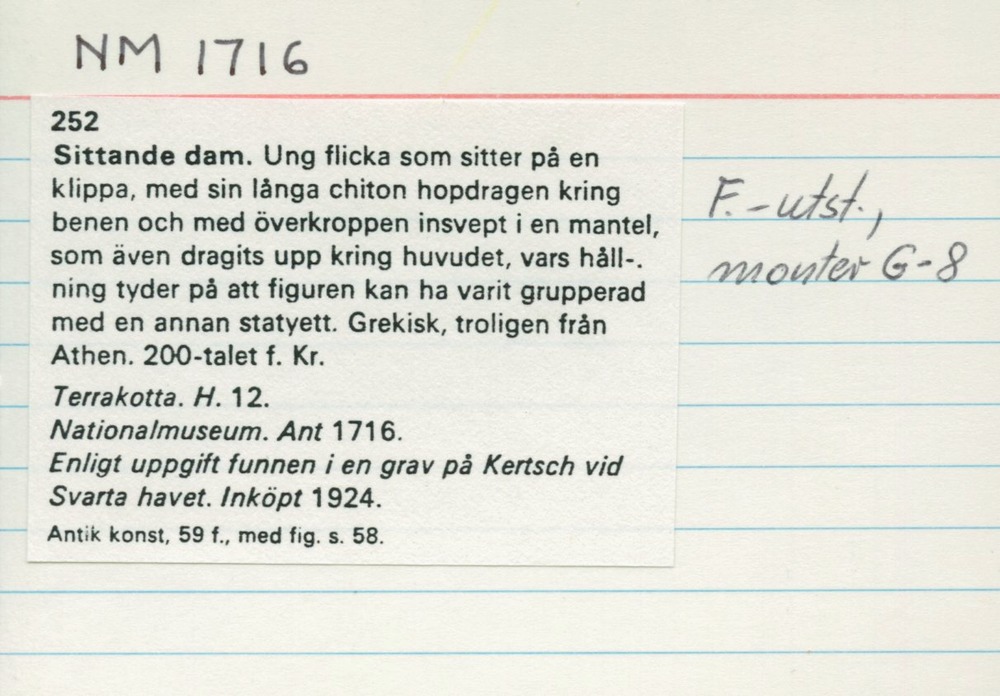 NM 1716
252
Sittande dam. Ung flicka som sitter på en
klippa, med sin långa chiton hopdragen kring
benen och med överkroppen insvept i en mantel,
som även dragits upp kring huvudet, vars håll-.
ning tyder på att figuren kan ha varit grupperad
med en annan statyett. Grekisk, troligen från
Athen. 200-talet f. Kr.
Terrakotta. H. 12.
Nationalmuseum. Ant 1716.
Enligt uppgift funnen i en grav på Kertsch vid
Svarta havet. Inköpt 1924.
Antik konst, 59 f., med fig. s. 58.
F.-utst.,
monter G-8